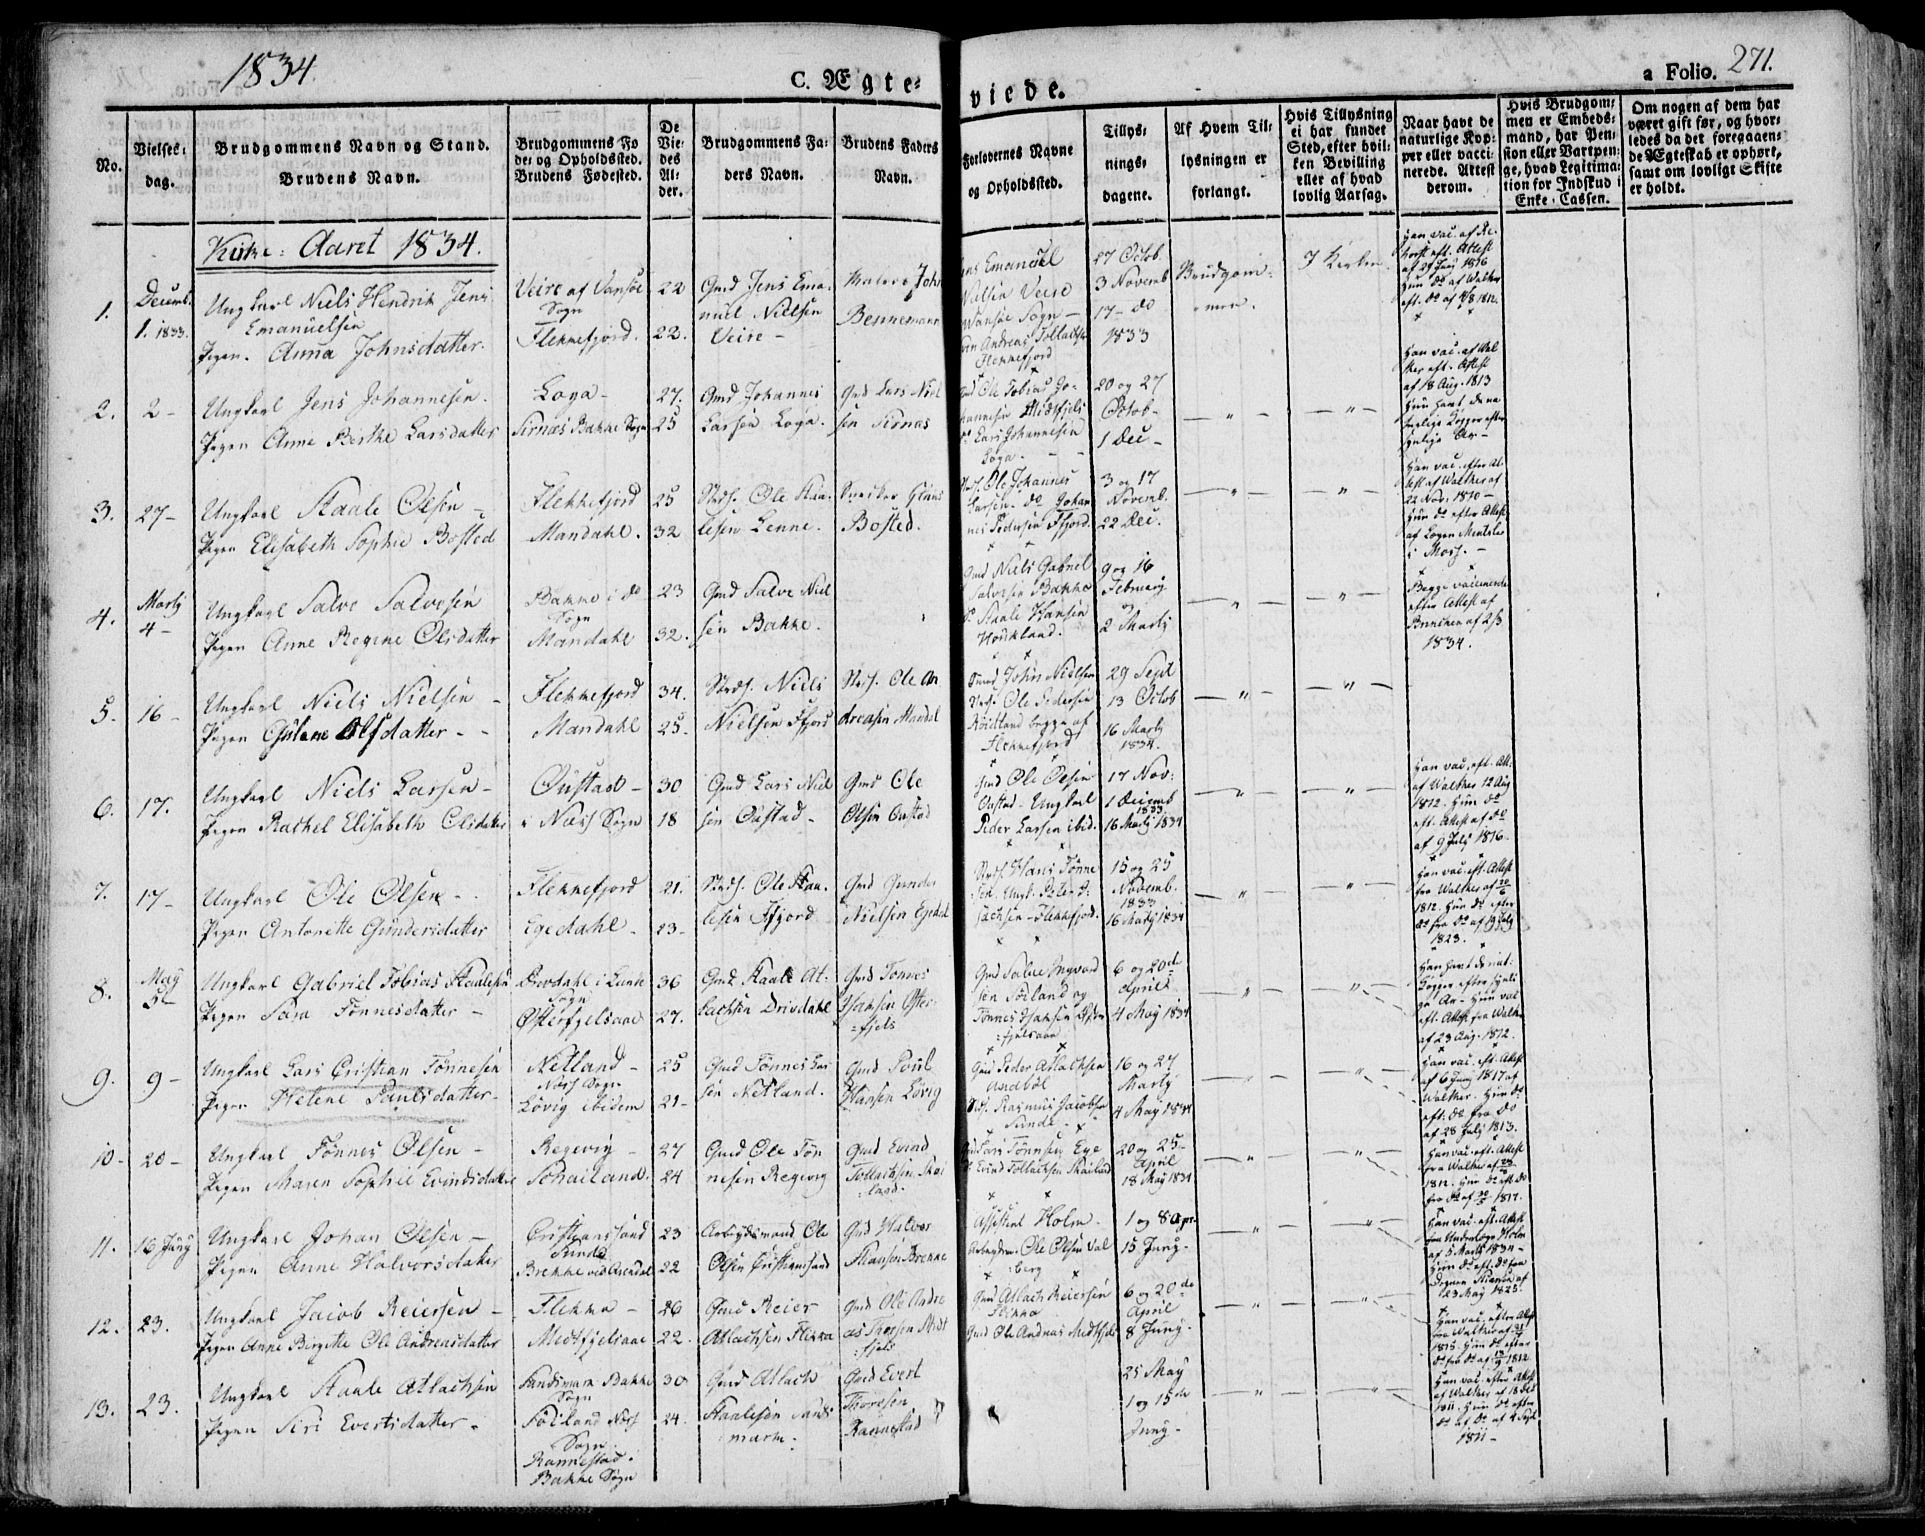 1834.
C. Ægte=
viede.
a Folio. 271.
No.
Vielses=
dag.
Brudgommens Navn og Stand.
Brudens Navn.
Brudgommens Fø
de= og Opholdssted.
Brudens Fødested.
De
Vie=
des
Al=
der.
Brudgommens Fa=
ders Navn.
Brudens Faders
Navn.
Forlovernes Navne
og Opholdssted.
Tillys=
nings=
dagene.
Af Hvem Til=
lysningen er
forlangt.
Hvis Tillysning
ei har fundet
Sted, efter hvil=
ken Bevilling
eller af hvad
lovlig Aarsag.
Naar havt de
naturlige Kop=
per eller vacci=
nerede. Attest
derom.
Hvis Brudgom=
men er Embeds=
mand, har Pen=
sion eller Vartpen=
ge, hvad Legitima=
tion for Indskud i
Enke=Cassen.
Om nogen af dem har
været gift før, og hvor=
ledes da det foregaaen=
de Ægteskab er ophørt,
samt om lovligt Skifte
er holdt.
Kirke= Aaret 1834.
1.
Decemb.
1. 1833.
Ungkarl Niels Hendrik Jens
Emanuelsen
Pigen. Anna Johnsdatter.
Veire af Vansøe
Sogn
Flekkefjord.
22
22.
Gmd Jens Ema=
nuel Nielsen
Veire -
John
Bennemann
Jens Emanuel
Nielsen Veire
Vansøe Sogn -
Andreas Tollachsen
Flekkefjord
27 Octob.
3 Novemb
17 - do
1833
Brudgom=
men.
I Kirken
Han vac. af
eft. Attest
af 29 Juny 1816
Hun do af Walker
eft. do af 1812.
2.
2 -
Ungkarl Jens Johannesen.
Pigen Anne Berthe Larsdatter
Loga -
Sirnæs Bakke Sogn
27.
25
Gmd Johannes
Larsen Loga.
Gmd Lars Niel
sen Sirnæs
Gmd Ole Tobias Jo=
hannesen Midtfjels
do Lars Johannesen
Loga.
20 og 27
Octob -
1 Dec -
Han vac. af Wal
ker eft. Attest
af 18 Aug. 1813
Hun havt de na
turlige Kopper efter
synlige Ar -
3.
27 -
Ungkarl Staale Olsen -
Pigen Elisabeth Sophie Bosted
Flekkefjord
Mandahl.
25
32
Strds. Ole Staa=
lesen Lenne.
Snedker
Bosted.
Strds. Ole Johannes
Larsen. do Johan
nes Pedersen Ffjord.
3 og 17
Novemb.
22 Dec.
Han vac. efter At
test af Walker af
22 Nov. 1810 -
Hun do efter Attest
af Lægen Mentzle
i Moss. -
4.
Marty
4 -
Ungkarl Salve Salvesen
Pigen Anne Regine Olsdatter
Bakke i do
Sogn
Mandahl
23
32.
Gmd Salve Niel
sen Bakke.
Gmd Niels Gabriel
Salvesen Bakke
do Staale Hansen
9 og 16
February
2 Marty
Begge vaccinerede
efter Attest af
1834.
5.
16 -
Ungkarl Niels Nielsen -
Pigen Gulene Olsdatter - -
Flekkefjord
Mandahl
34.
25.
Strds. Niels
Nielsen Ffjord
Strds. Ole An
dreasen Mandal
John Nielsen
Ole Pedersen
begge af
Flekkefjord
29 Sept
13 Octob
16 Marty
1834.
6.
17.
Ungkarl Niels Larsen -
Pigen Rachel Elisabeth Olsdatter
Oustad -
i Næss Sogn
30
18
Gmd Lars Niel
sen Oustad -
Gmd Ole
Olsen Oustad
Gmd Ole Olsen
Oustad - Ungkarl
Peder Larsen ibid.
17 Nov=
1 Decemb
1833
16 Marty 1834
Han vac. eft. Att.
af Walker 12 Aug
1812. Hun do
eft. Attest af do
af 9 July 1816.
7.
17 -
Ungkarl Ole Olsen -
Pigen Antonette Gundersdatter
Flekkefjord
Egedahl -
21.
23 -
Strds. Ole Staa=
lesen Ffjord
Gmd Gunder
Nielsen Egedal
Strds. Hans Tønne
sen. Ungk. Peter
Flekkefjord.
15 og 25
Novemb.
1833
16 Marty 1834
Han vac. eft. Attest
fra Walker af
1812. Hun do efter
do fra do af 19 July
1823.
8.
May
5 -
Ungkarl Gabriel Tobias Staalesen
Pigen Sara Tønnesdatter -
Drivdahl i Lunde
Sogn
Østerfjelsaae
36
27.
Gmd Staale At=
lachsen Drivdahl
Gmd Tønnes
Isachsen Øster=
fjels
Gmd Salve Ingvald
sen Søiland og
Tønnes Isachsen Øster
fjelsaae
6 og 20de
April
4 May 1834
Han havt de nat.
Kopper efter synli
ge Ar - Hun vac
eft. Attest fra Walker
af 23 Aug. 1812.
9.
9 -
Ungkarl Lars Cristian Tønnesen
Pigen Helene Paulsdatter -
Netland -
Næss Sogn
Løvig ibidem
25
21 -
Gmd Tønnes Lar
sen Netland.
Gmd Poul
Hansen Løvig
Gmd Peder Atlachsen
Rasmus Jacobsen
Sunde -
16 og 27
Marty
4 May 1834
Han vac. eft. Attest
af 6 Juny 1817 af
Walker. Hun do
eft. do fra do
af 28 July 1813.
10 -
20 -
Ungkarl Tønnes Olsen -
Pigen Maren Sophie Evindsdatter
Regevig -
Schailand.
27
24
Gmd Ole Tøn
nesen Regevig
Gmd Evind
Tollachsen Skai
land.
Gmd Lars Tønnesen Ege
do Evind Tollachsen Skailand
20 og 25 -
April
18 May 1834
Han vac. eft. Attest
fra Walker af
1812. Hun do eft. do
fra do af 1817.
11.
16 Juny
Ungkarl Johan Olsen -
Pigen Anne Halvorsdatter
Cristianssand
Brekke ved Arendal
23
22
Arbeydsmand Ole
Olsen Cristianssand
Gmd Halvor
Hansen Brekke
Assistent Holm -
Arbeydsm. Ole Olsen Val
berg
1 og 8 Apr.
15 Juny -
Han vac. eft. Attest
fra Holm
af 5 Marty 1834 -
Hun do eft. do fra
af
23 May 1825.
12.
23.
Ungkarl Jacob Reiersen -
Pigen Anne Birgitte Ole Andreasdatter
Flikka -
Midtfjelsaae
26
22.
Gmd Reier
Atlachsen Flikka
Gmd Ole Andre
as Thorsen Midt
fjels
Gmd Atlach Reiersen
Flikka
Gmd Ole Andreas Midtfjels
6 og 20de
April
8 Juny -
Han vac. efter Attest
fra Walker af
1815. Hun do efter
do fra do af 1812
13.
23.
Ungkarl Staale Atlachsen
Pigen Siri Evertsdatter -
Sandsmark Bakke
Sogn
Søiland Næss
Sogn
Rannestad
Bakke Sogn
30
24.
Gmd Atlach
Staalesen Sands
mark.
Gmd Evert
Thoresen
Rannestad
25 May
1 og 15de
Juny -
Han vac. efter Attest
af Walker af 18 Oct
1811. Hun do efter
do af do af 4 Sept
1811 -